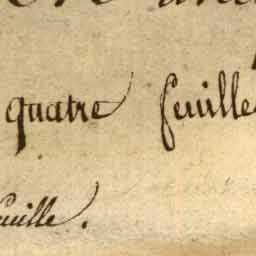 quatre feuille
feuille.